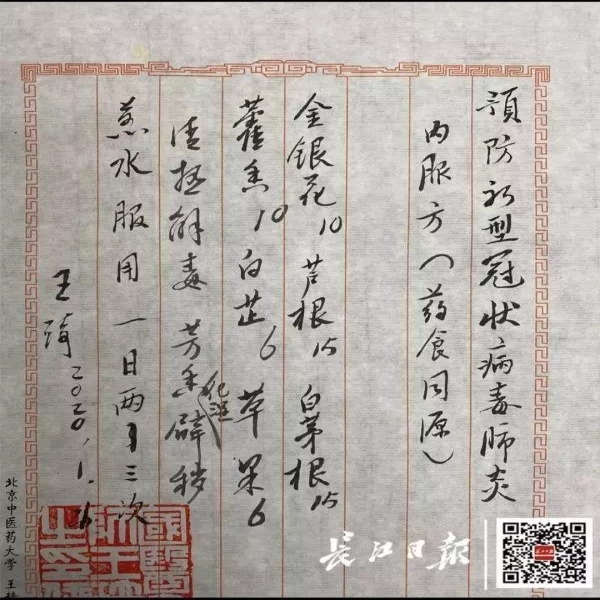 预防新型冠状病毒肺炎
内服方（药食同源）
金银花10 芦根15 白茅根15
藿香10 白芷6 草果6
清瘟解毒 芳香化湿辟秽
煎水服用 一日两到三次
王琦 二〇二〇.1.
北京中医药大学 王琦
长江日报